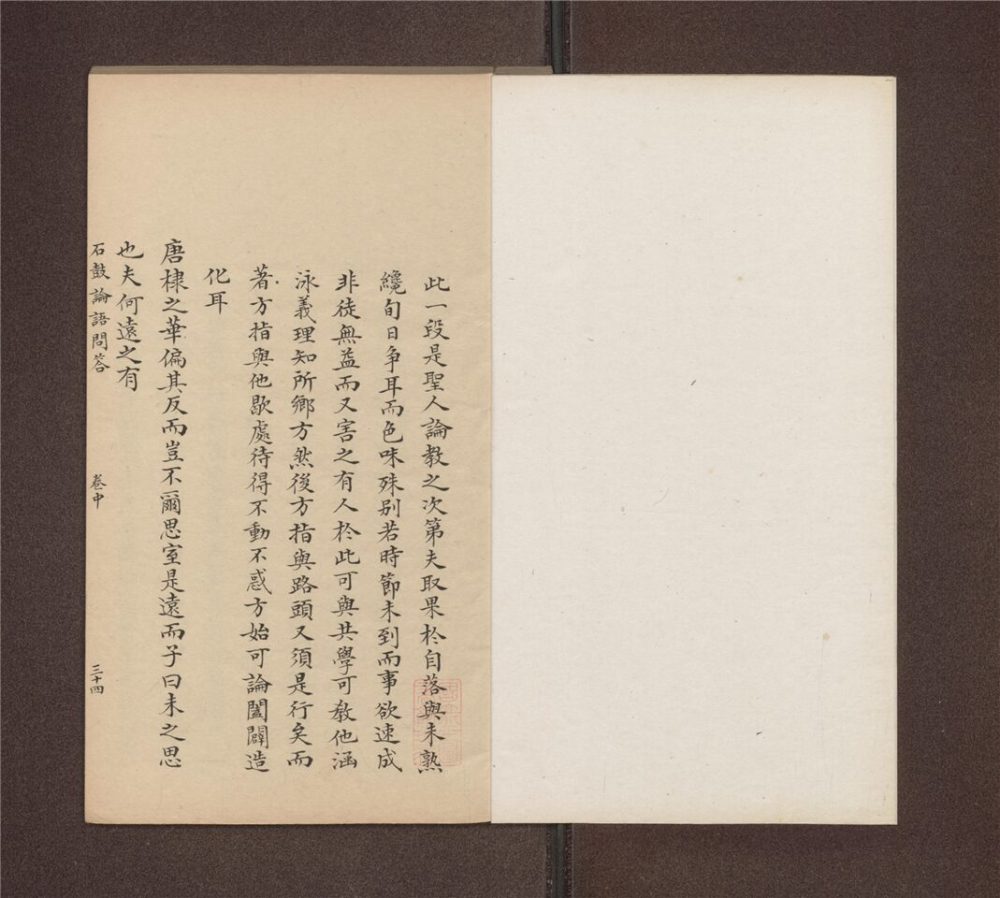 此一段是聖人論教之次第夫取果於自落與未熟
纔旬日争耳而色味殊别若時節未到而事欲速成
非徒無益而又害之有人於此可與共學可教他涵
泳義理知所鄉方然後方指與路頭又須是行矣而
著方指與他歇處待得不動不惑方始可論闔闢造
化耳
唐棣之華偏其反而豈不爾思室是遠而子曰未之思
也夫何遠之有
石鼓論語問答 卷中 三十四